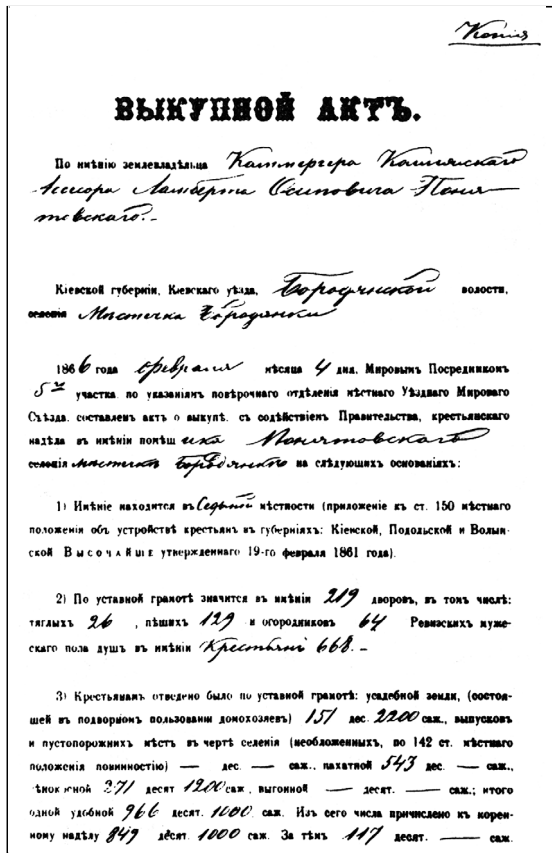 Копія
ВЫКУПНОЙ АКТЪ.
По имѣнію землевладѣльца Каммергера
Ассесора Ламберта Осиповича Поня-
товскаго.-
Кіевской губерніи, Кіевскаго уѣзда, Бородянской волости,
селенія Мѣстечка Бородянки
1866 года февраля мѣсяца 4 дня, Мировымъ Посредникомъ
5го участка, по указаніямъ повѣрочнаго отдѣленія мѣстнаго Уѣзднаго Мироваго
Съѣзда, составленъ актъ о выкупѣ, съ содѣйствіемъ Правительства, крестьянскаго
надѣла въ имѣніи помѣщика Понятовскаго
селенія мѣстечка Бородянки на слѣдующихъ основаніяхъ:
1) Имѣніе находится въ Седьмой мѣстности (приложеніе къ ст. 150 мѣстнаго
положенія объ устройствѣ крестьянъ въ губерніяхъ: Кіевской, Подольской и Волын-
ской Высочайше утвержденнаго 19-го февраля 1861 года).
2) По уставной грамотѣ значится въ имѣніи 219 дворовъ, въ томъ числѣ:
тяглыхъ 26, пѣшихъ 129 и огородниковъ 64 Ревизскихъ муже-
скаго пола душъ въ имѣніи Крестьянъ 668.-
3) Крестьянамъ отведено было по уставной грамотѣ: усадебной земли, (состоя-
шей въ подворномъ пользованіи домохозяевъ) 151 дес. 2200 саж., выпусковъ
и пустопорожнихъ мѣстъ въ чертѣ селенія (необложенныхъ, по 142 ст. мѣстнаго
положенія повинностію) — дес. — саж., пахатной 543 дес. — саж.,
сѣнокосной 271 десят 1200 саж., выгонной — десят. — саж.; итого
одной удобной 966 десят. 1000 саж. Изъ сего числа причислено къ корен-
ному надѣлу 849 десят. 1000 саж. За тѣмъ 117 десят. — саж.